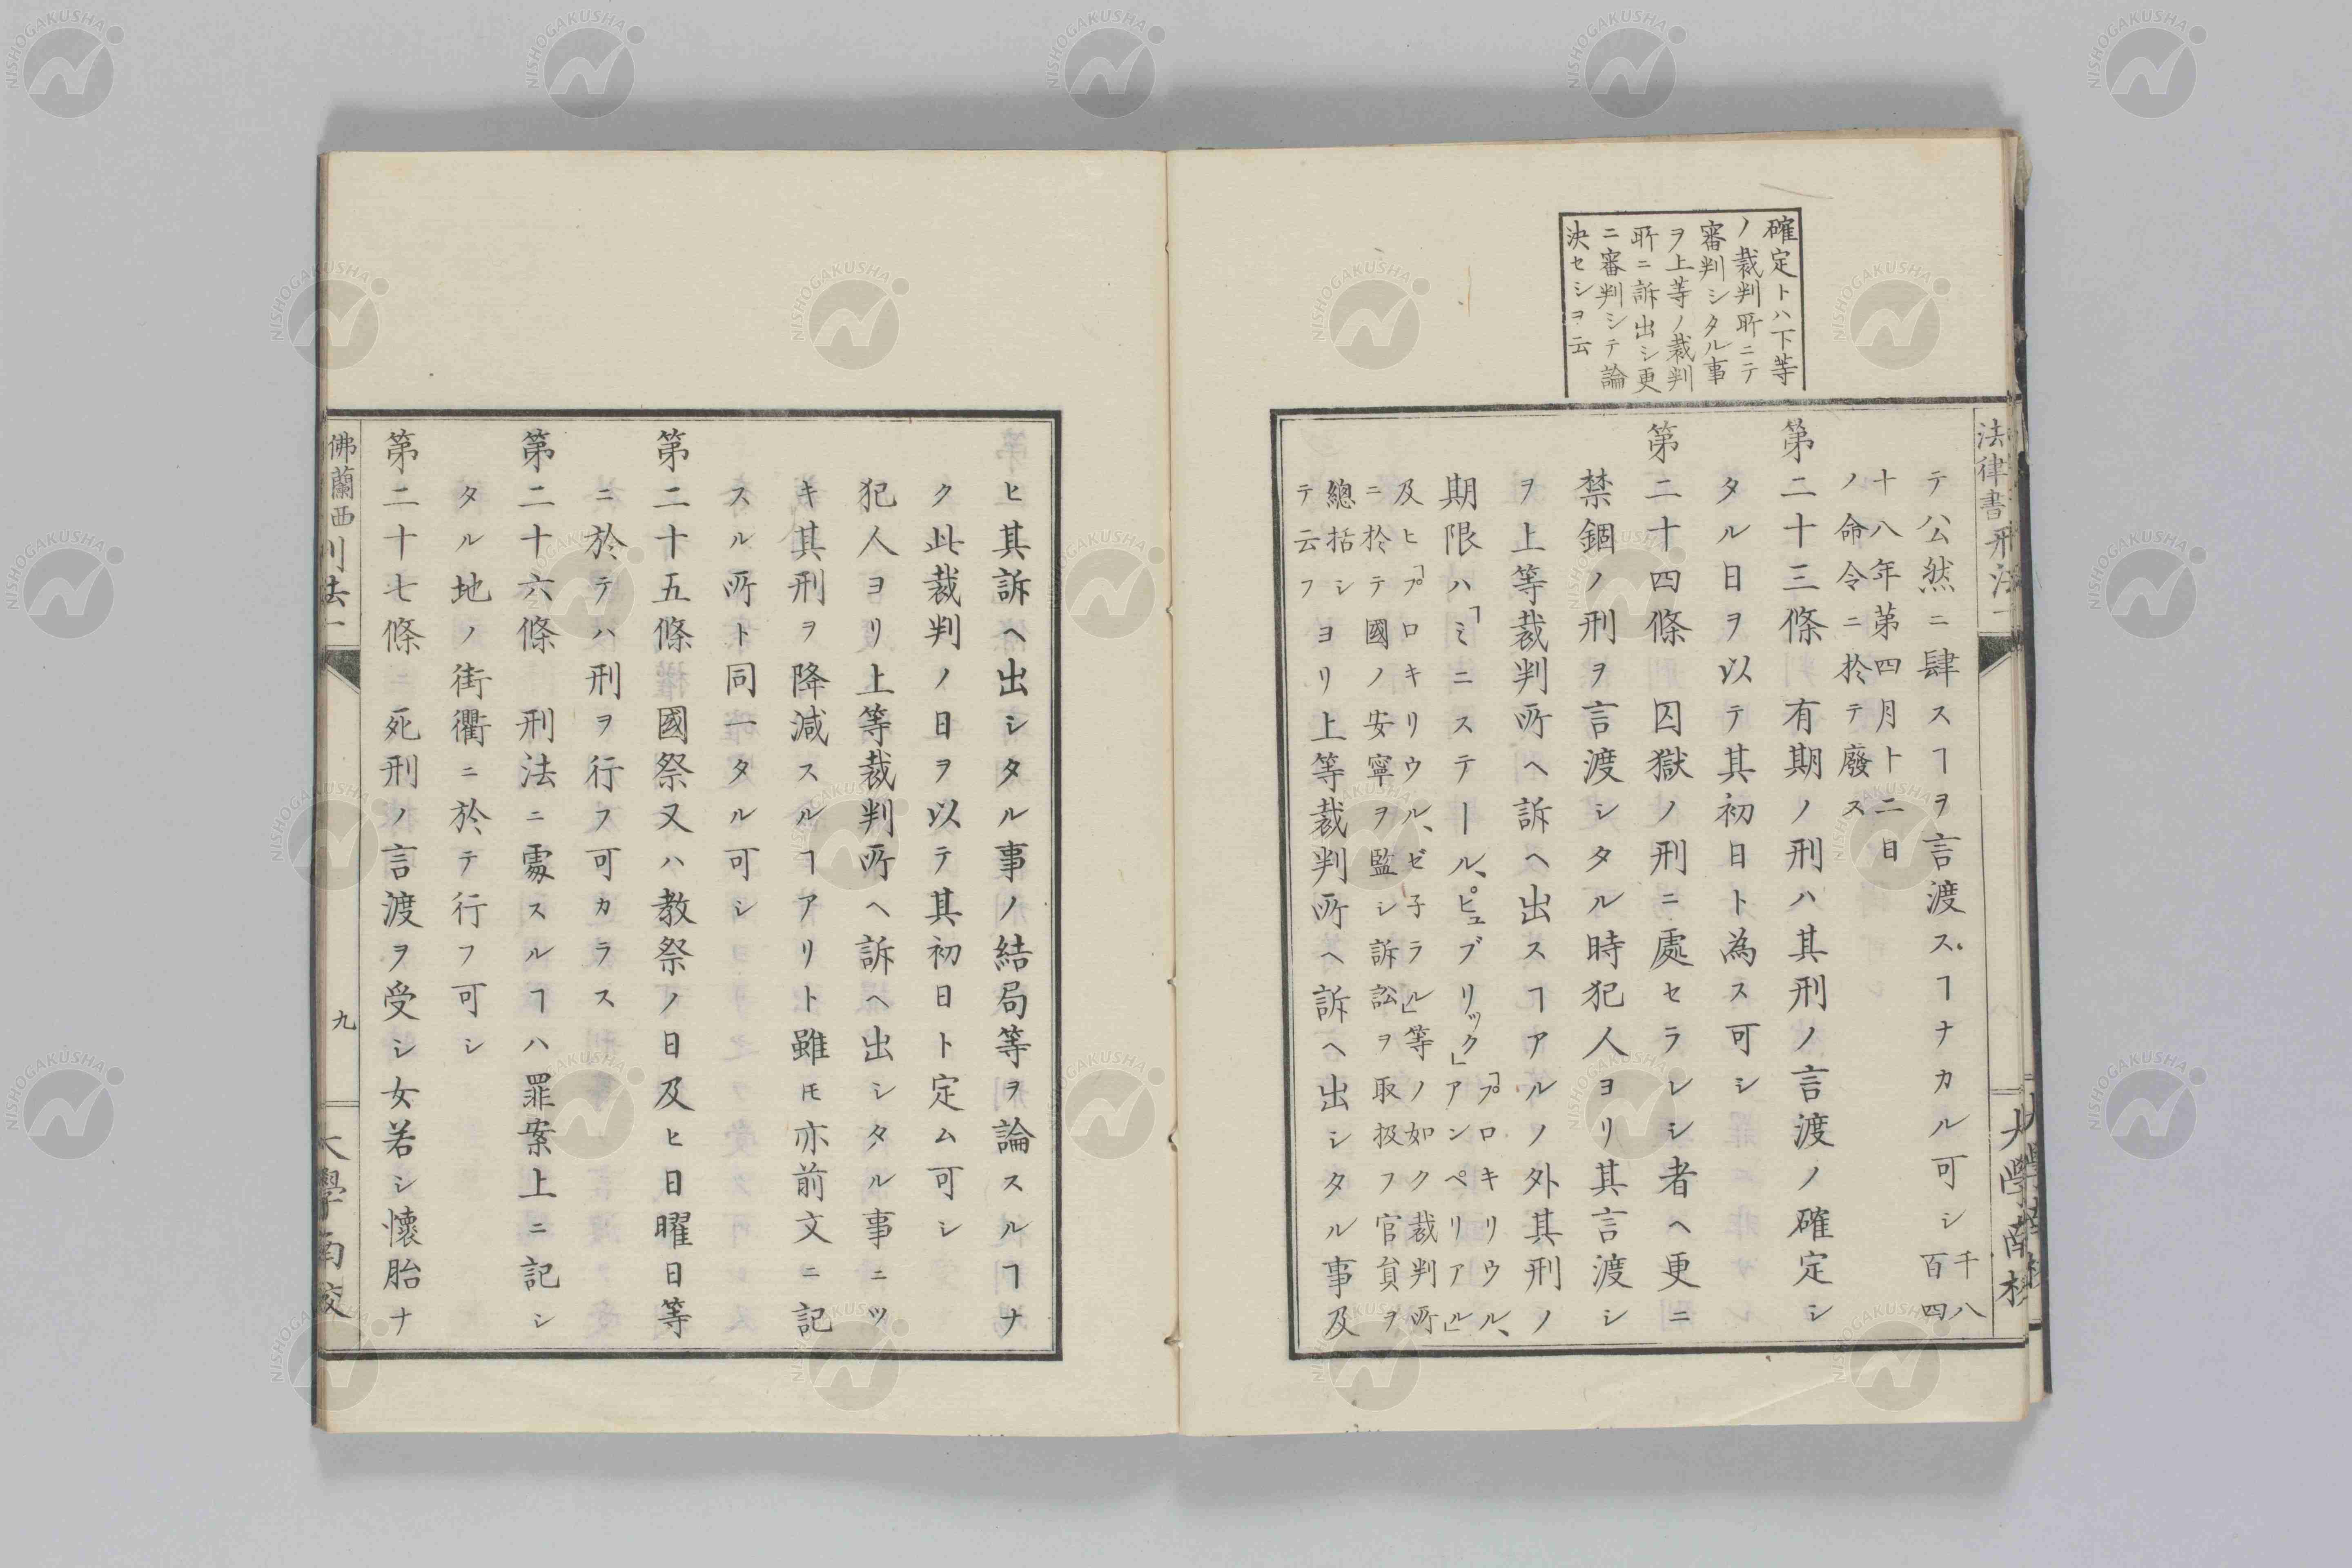 確定トハ下等
ノ裁判所ニテ
審判シタル事
ヲ上等ノ裁判
所ニ訴出シ更
ニ審判シテ論
決セシヲ云
法律書 刑法一
大學南校
テ公然ニ肆スヿヲ言渡スヿナカル可シ千八百四
十八年第四月十二日
ノ命令ニ於テ廢ス
第二十三條 有期ノ刑ハ其刑ノ言渡ノ確定シ
タル日ヲ以テ其初日ト為ス可シ
第二十四條 囚獄ノ刑ニ處セラレシ者ヘ更ニ
禁錮ノ刑ヲ言渡シタル時犯人ヨリ其言渡シ
ヲ上等裁判所ヘ訴ヘ出スヿアルノ外其刑ノ
期限ハ「ミニステール、ピュブリック」「プロキリウル、アンペリアル」
及ヒ「プロキリウル、ゼ子ラル」等ノ如ク裁判所
ニ於テ國ノ安寧ヲ監シ訴訟ヲ取扱フ官員ヲ
總括シ
テ云フ
ヨリ上等裁判所ヘ訴ヘ出シタル事及
ヒ其訴ヘ出シタル事ノ結局等ヲ論スルヿナ
ク此裁判ノ日ヲ以テ其初日ト定ム可シ
犯人ヨリ上等裁判所ヘ訴ヘ出シタル事ニツ
キ其刑ヲ降減スルヿアリト雖モ亦前文ニ記
スル所ト同一タル可シ
第二十五條 國祭又ハ教祭ノ日及ヒ日曜日等
ニ於テハ刑ヲ行フ可カラス
第二十六條 刑法ニ處スルヿハ罪案上ニ記シ
タル地ノ街衢ニ於テ行フ可シ
第二十七條 死刑ノ言渡ヲ受シ女若シ懷胎ナ
佛蘭西刑法一
九
大學南校
NISHOGAKUSHA